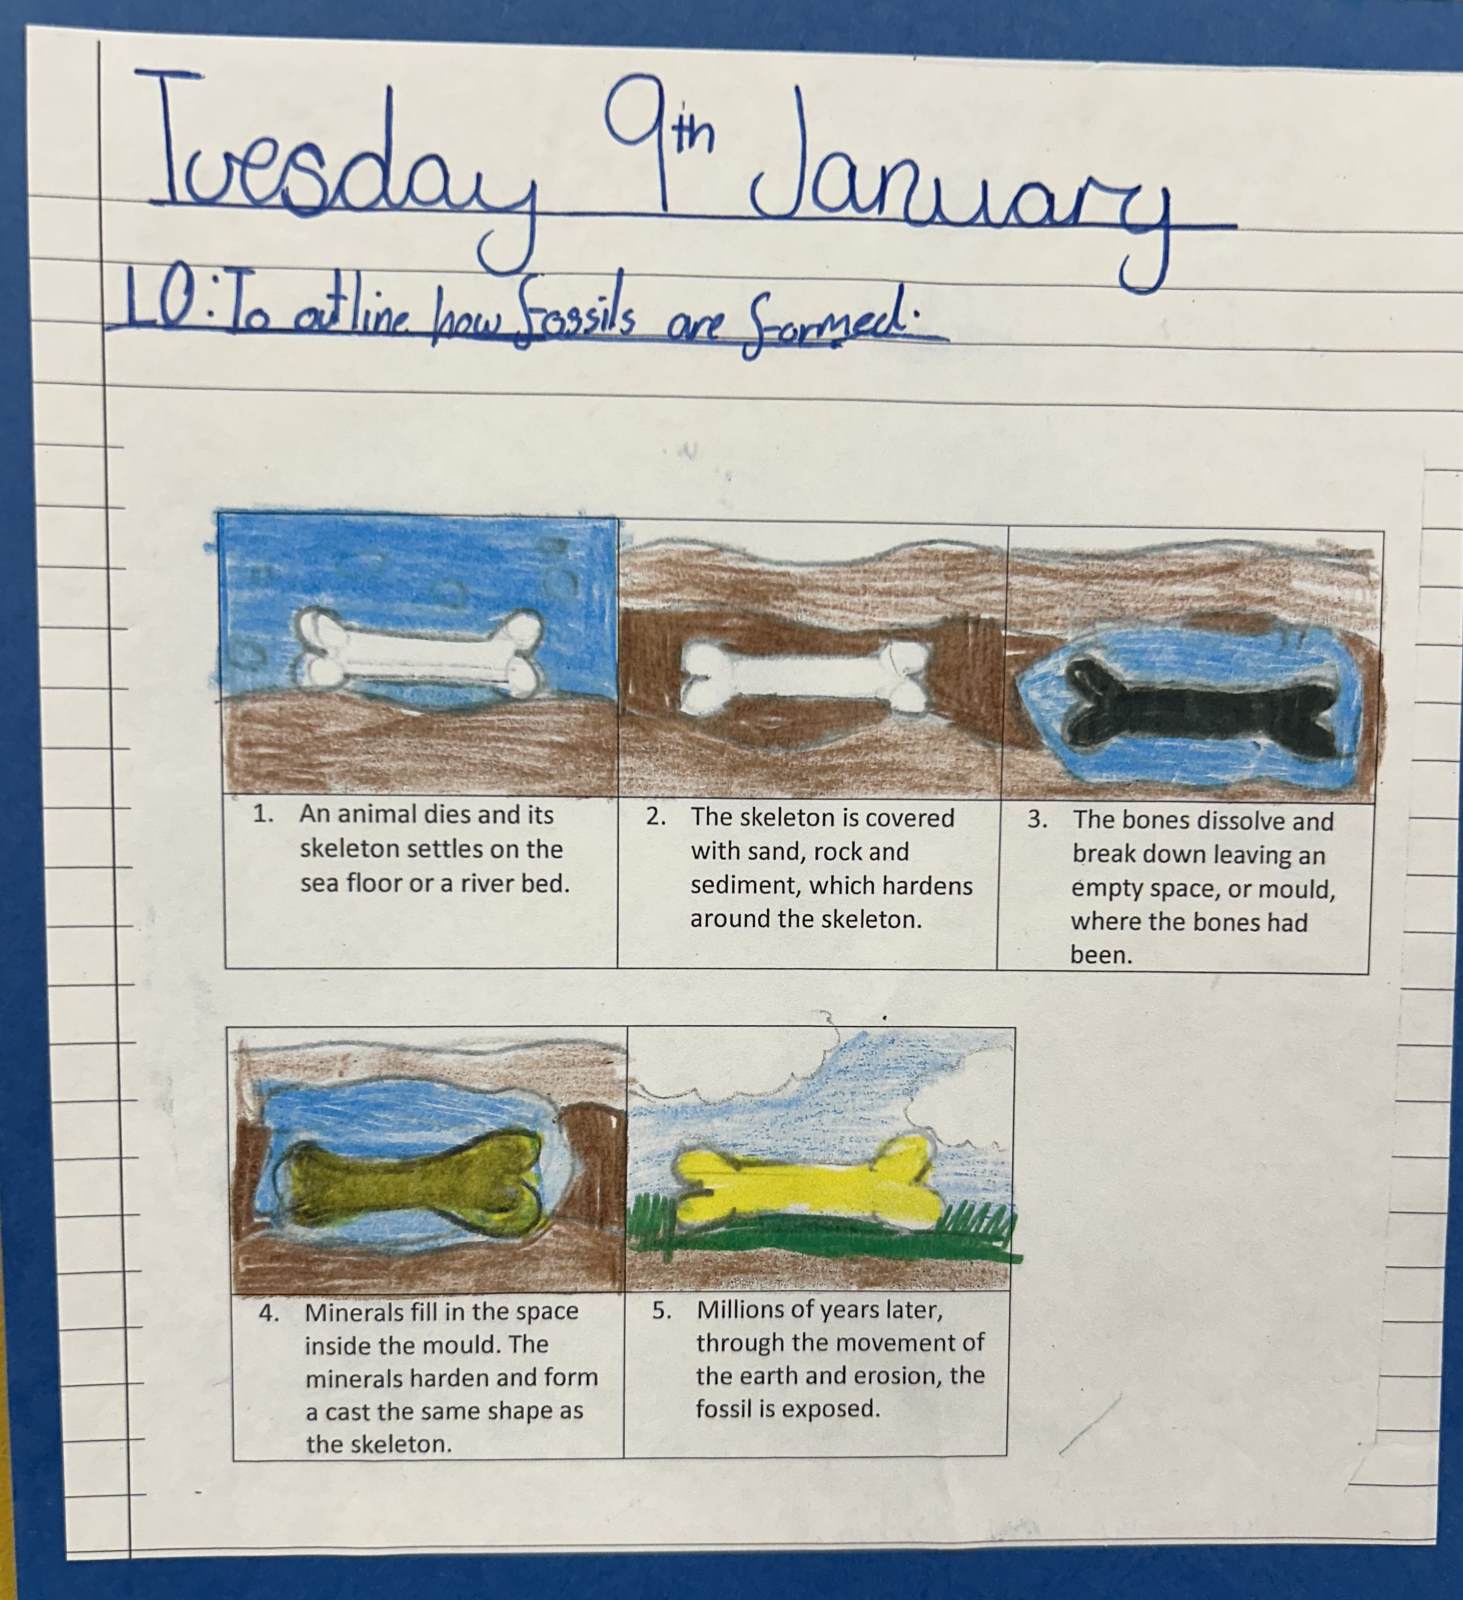 Tuesday 9th January
LO: To outline how fossils are formed.
1. An animal dies and its
skeleton settles on the
sea floor or a river bed.
2. The skeleton is covered
with sand, rock and
sediment, which hardens
around the skeleton.
3. The bones dissolve and
break down leaving an
empty space, or mould,
where the bones had
been.
4. Minerals fill in the space
inside the mould. The
minerals harden and form
a cast the same shape as
the skeleton.
5. Millions of years later,
through the movement of
the earth and erosion, the
fossil is exposed.